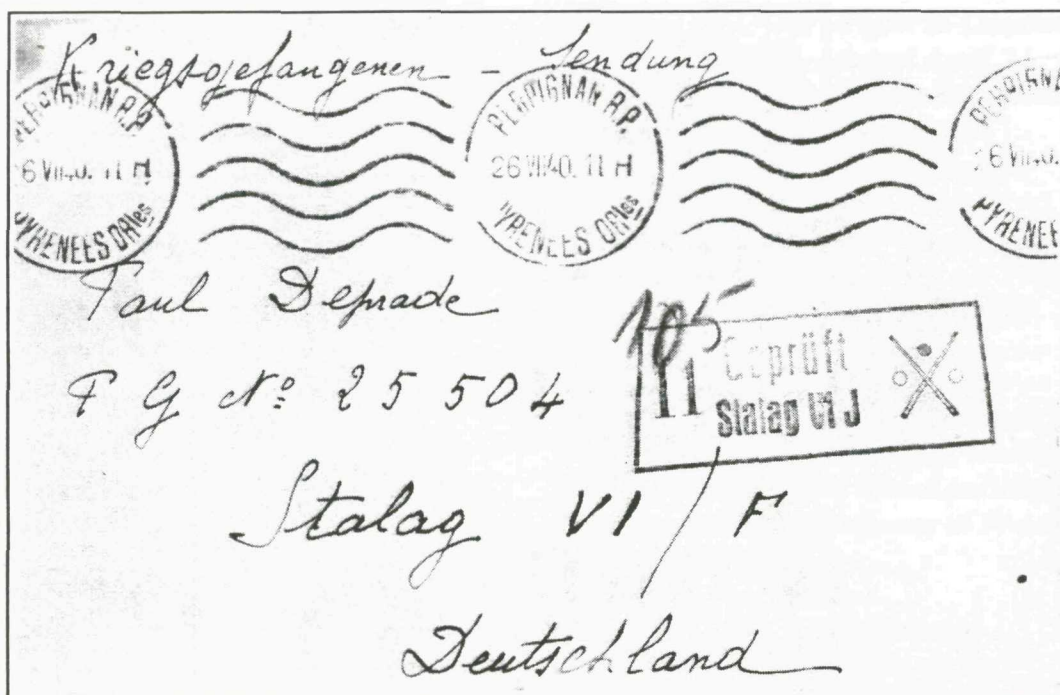 Kriegsgefangenen - Sendung
PERPIGNAN R.P.
6 VII 40. 11 H
PYRENEES ORles
PERPIGNAN R.P.
26 VII 40. 11 H
PYRENEES ORles
PERPIGNA
26 VII 40.
PYRENEE
Paul Deprade
105
11 Geprüft
Stalag VI J
P G № 25 504
Stalag VI / F
Deutschland